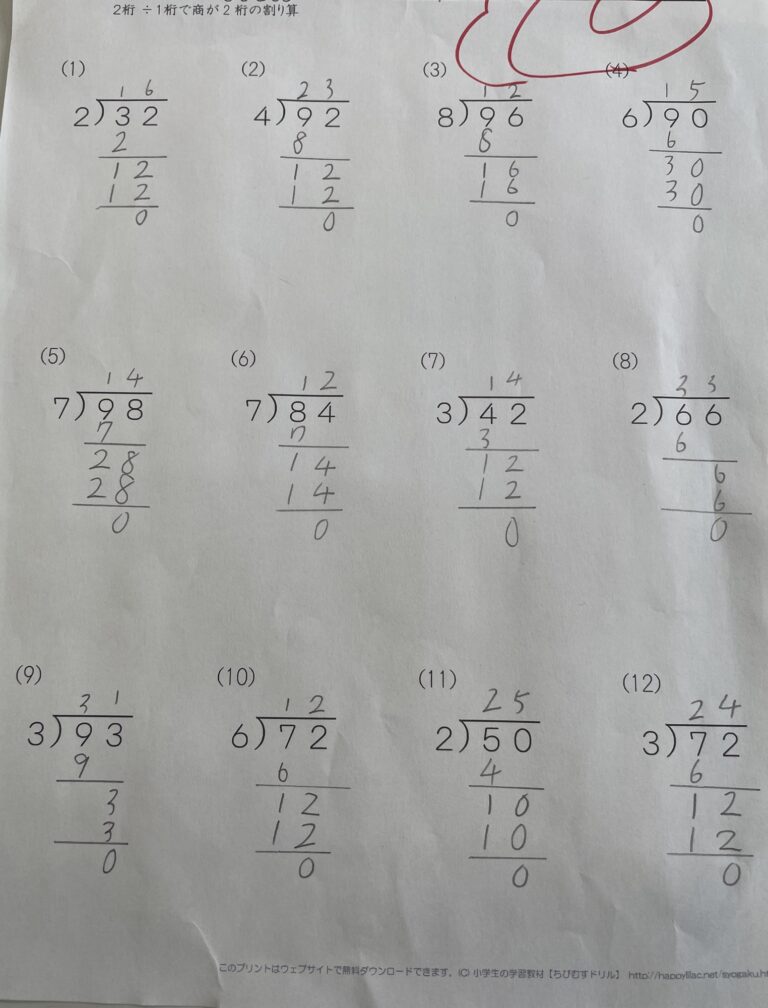 2桁 ÷1桁で商が2桁の割り算
(1) (2) (3) (4)
16 23 12 15
2)32 4)92 8)96 6)90
2 8 8 6
12 12 16 30
12 12 16 30
0 0 0 0
(5) (6) (7) (8)
14 12 14 33
7)98 7)84 3)42 2)66
7 7 3 6
28 14 12 6
28 14 12 6
0 0 0 0
(9) (10) (11) (12)
31 12 25 24
3)93 6)72 2)50 3)72
9 6 4 6
3 12 10 12
3 12 10 12
0 0 0 0
このプリントはウェブサイトで無料ダウンロードできます。(C) 小学生の学習教材【ちびむすドリル】 http://happylilac.net/syogaku.h